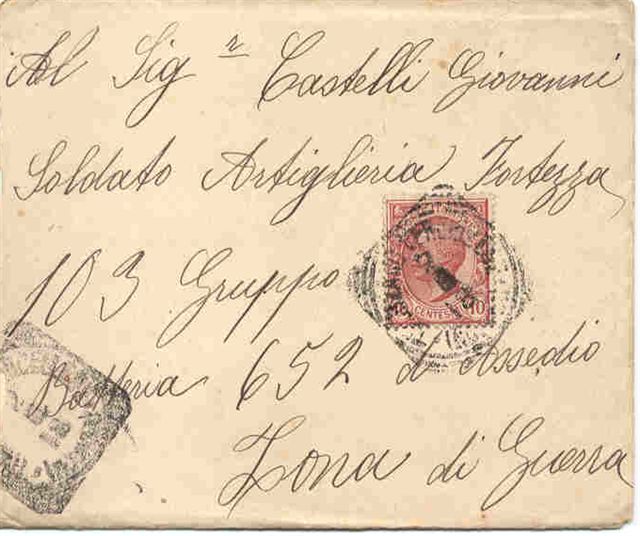 Al Sig r Castelli Giovanni
Soldato Artiglieria Fortezza
103 Gruppo
Batteria 652 d'Assedio
Zona di Guerra
CENTES. 10